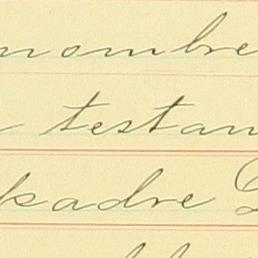 nombre
testam
padre